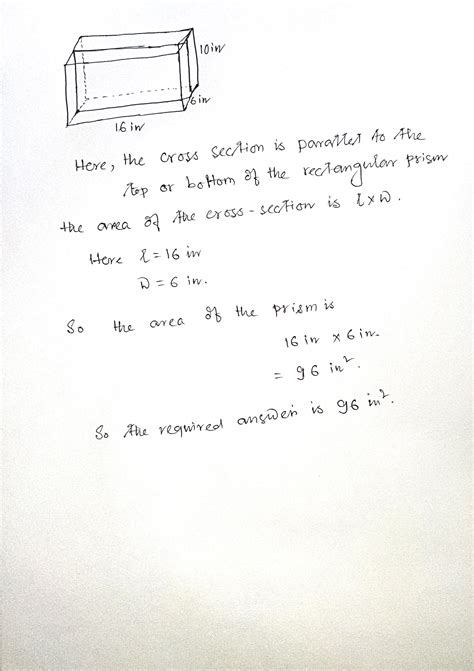 10in
6in
16 in
Here, the cross section is parallel to the
top or bottom of the rectangular prism
the area of the cross-section is l×w.
Here l = 16 in
w = 6 in.
So the area of the prism is
16 in × 6 in.
= 96 in².
So the required answer is 96 in².